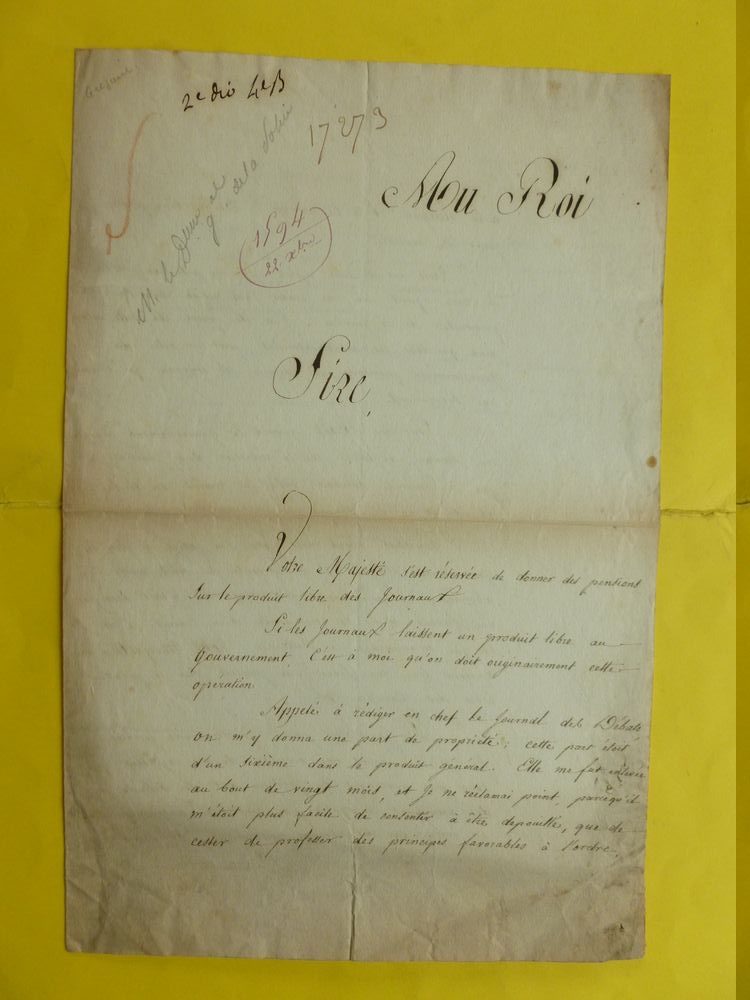 2e div 4e B
17273
1594
22 xbre
Au Roi
Sire,
Votre Majesté s'est réservée de donner des pensions
sur le produit libre des Journaux
Si les Journaux laissent un produit libre au
Gouvernement, C'est à moi qu'on doit originairement cette
opération
Appelé à rédiger en chef le Journal des Débats
on m'y donna une part de propriété; cette part étoit
d'un sixième dans le produit general. Elle me fut enlevée
au bout de vingt mois, et je ne réclamai point, parcequ'il
m'étoit plus facile de consentir à être depouillé, que de
cesser de professer des principes favorables à l'ordre,